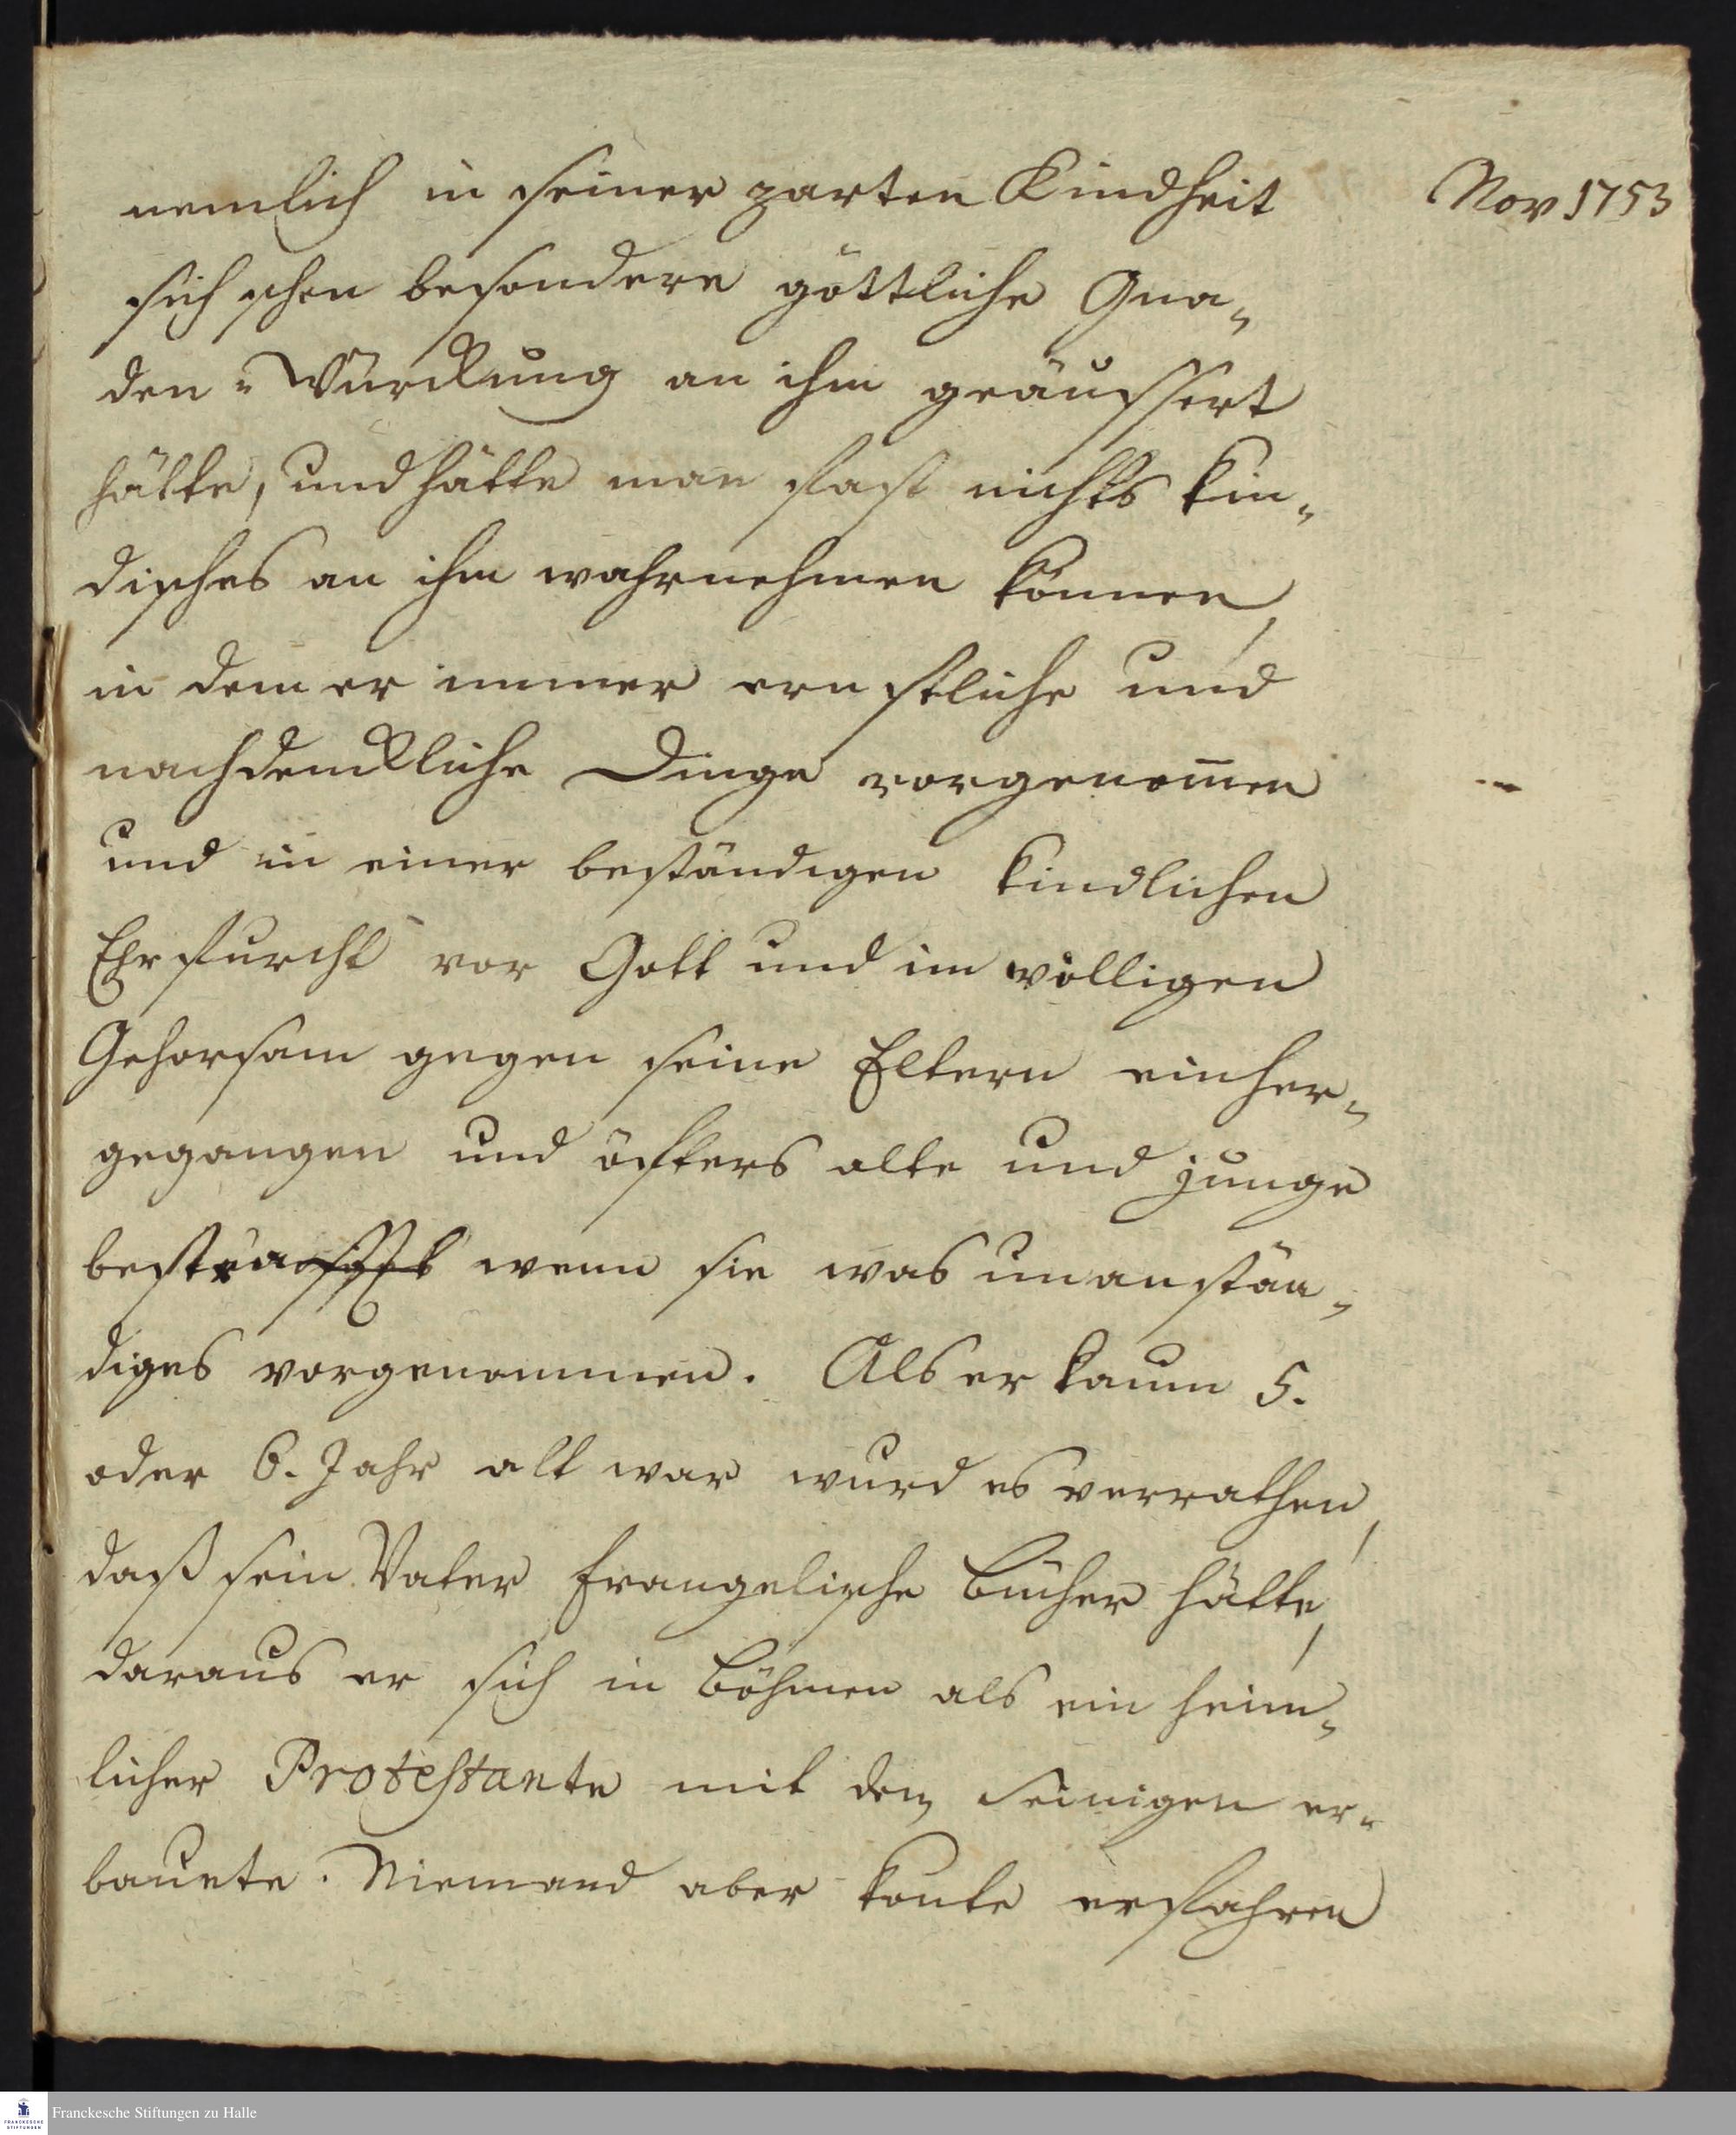 nemlich in seiner zarten Kindheit
Nov 1753
sich schon besondere göttliche Gna„
den „ Würckung an ihm geäussert
hätte, und hätte man fast nichts kin„
disches an ihm wahrnehmen können,
in dem er immer ernstliche und
nachdenckliche Dinge vorgenom̄en
und in einer beständigen kindlichen
Ehrfurcht vor Gott und im völligen
Gehorsam gegen seine Eltern einher„
gegangen und öfters alte und junge
wenn sie was unanstän„
diges vorgenommen. Als er kaum 5.
oder 6. Jahr alt war wurd es verrathen,
daß sein Vater Evangelische Bücher hätte,
daraus er sich in Böhmen als ein heim„
licher Protestante mit den Seinigen er„
bauete. Niemand aber konte erfahren
Franckesche Stiftungen zu Halle
FRANCKESCHE
STIFTUNGEN